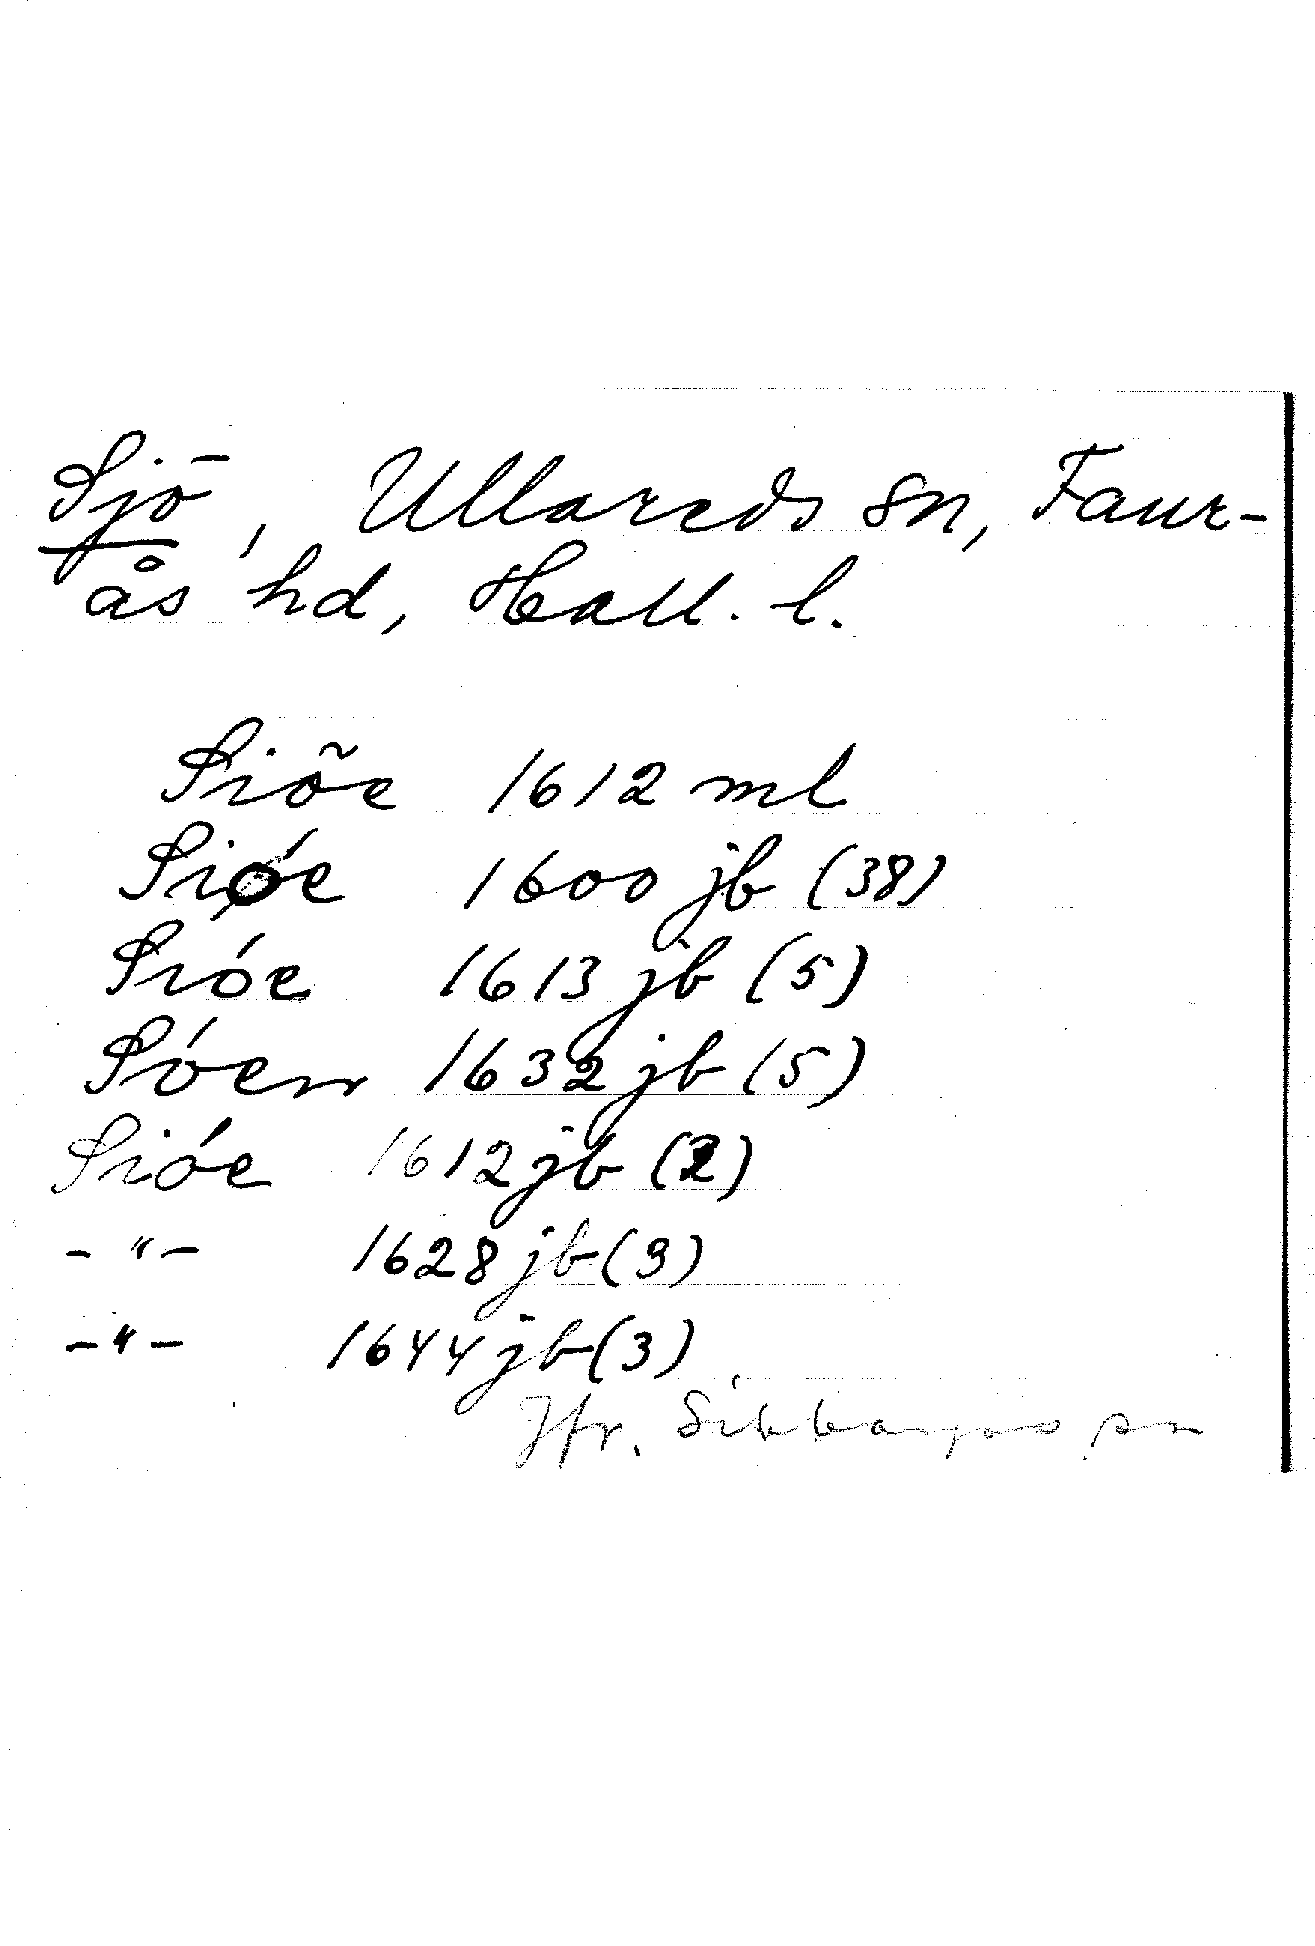 Sjö, Ullareds sn, Faur-
ås hd, Hall. l.
Siõe 1612 ml
Siǿe 1600 jb (38)
Sióe 1613 jb (5)
Sóen 1632 jb (5)
Sióe 1612 jb (2)
-"- 1628 jb (3)
-"- 1644 jb (3)
Jfr. Sibbarps sn